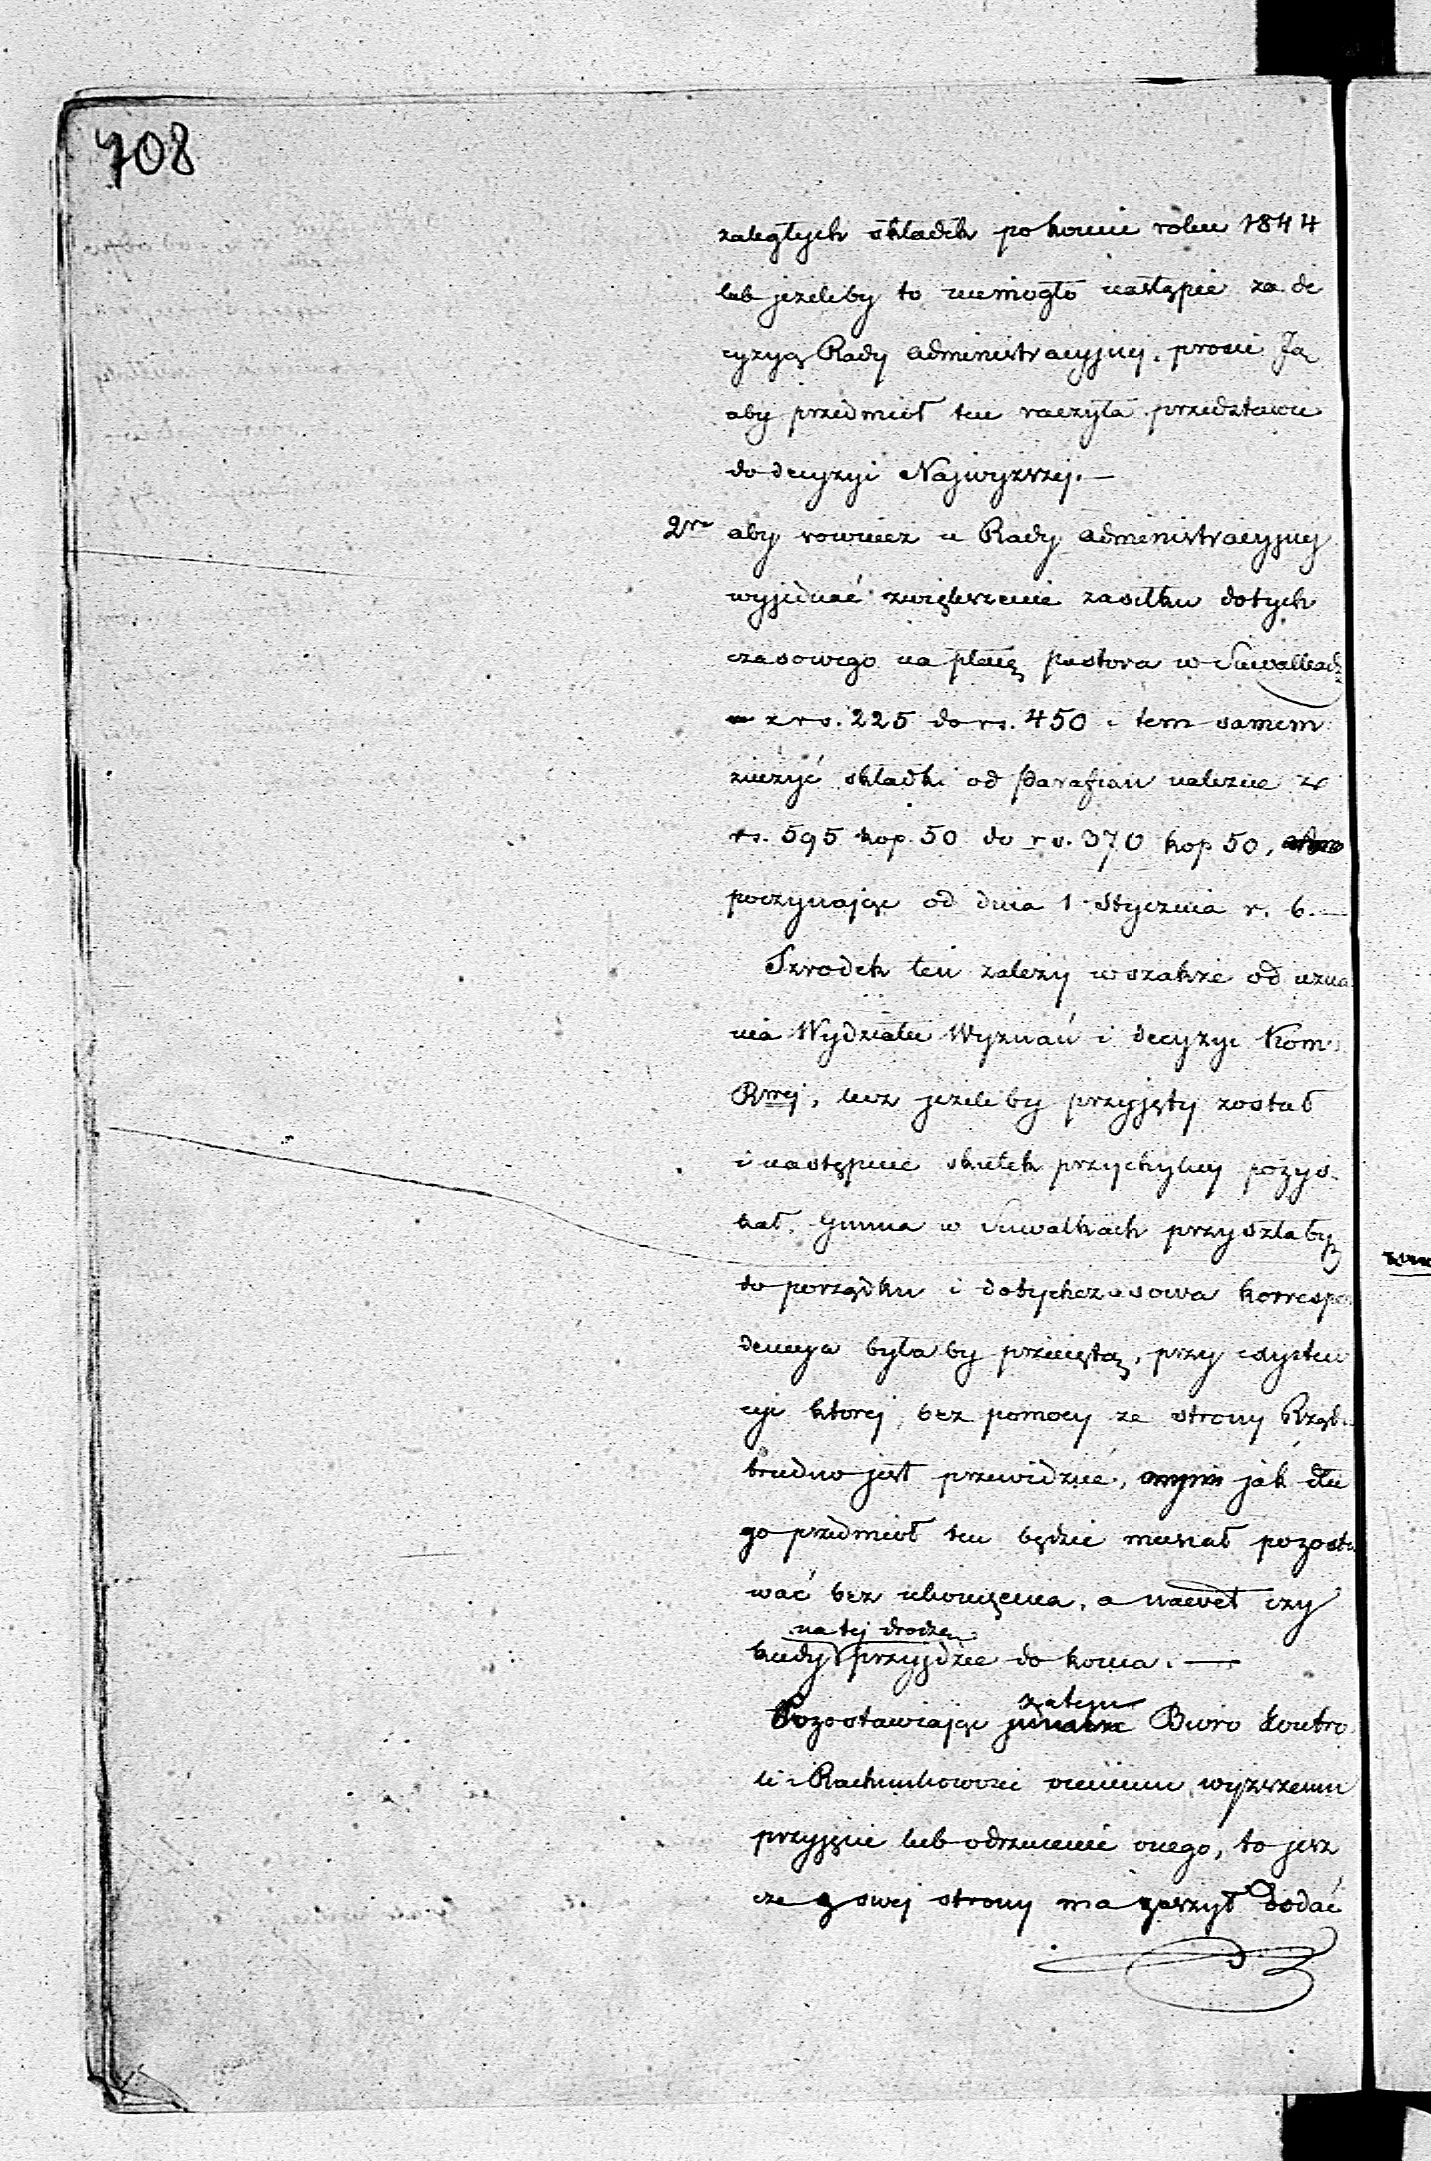 708
zaległych składek po koniec roku 1844
lub jeżeliby to niemogło nastąpić za de
cyzyą Rady administracyjnej, prosić Ją
aby przedmiot ten raczyła przedstawić
do decyzyi Najwyższej.—
2re aby rownież u Rady administracyjnej
wyjednać zwiększenie zasiłku dotych
czasowego na płacę pastora w Suwałkach
z rs. 225 do rs. 450 i tem samem
zniżyć składki od Parafian należne z
rs. 595 kop. 50 do rs. 370 kop 50,
poczynając od dnia 1 Stycznia r. b.—
Szrodek ten zależy wszakże od uzna
nia Wydziału Wyznań i decyzyi Kom.
Rwej, lecz jeżeliby przyjęty został
i następnie skutek przychylny pozys-
kał, Gmina w Suwałkach przyszłaby
do porządku i dotychczasowa korrespon
dencya byłaby przeciętą, przy exysten
cyi ktorej, bez pomocy ze strony Rządu
trudno jest przewidzieć, jak dłu
go przedmiot ten będzie musiał pozosta
wać bez ukończenia, a nawet czy
na tej drodze
kiedy przyjdzie do końca.—
zatem
Pozostawiając jednakże Biuro Kontro
li i Rachunkowości ocenieniu wyższemu
przyjęcie lub odrzucenie onego, to jesz
cze z swej strony ma zaszczyt dodać